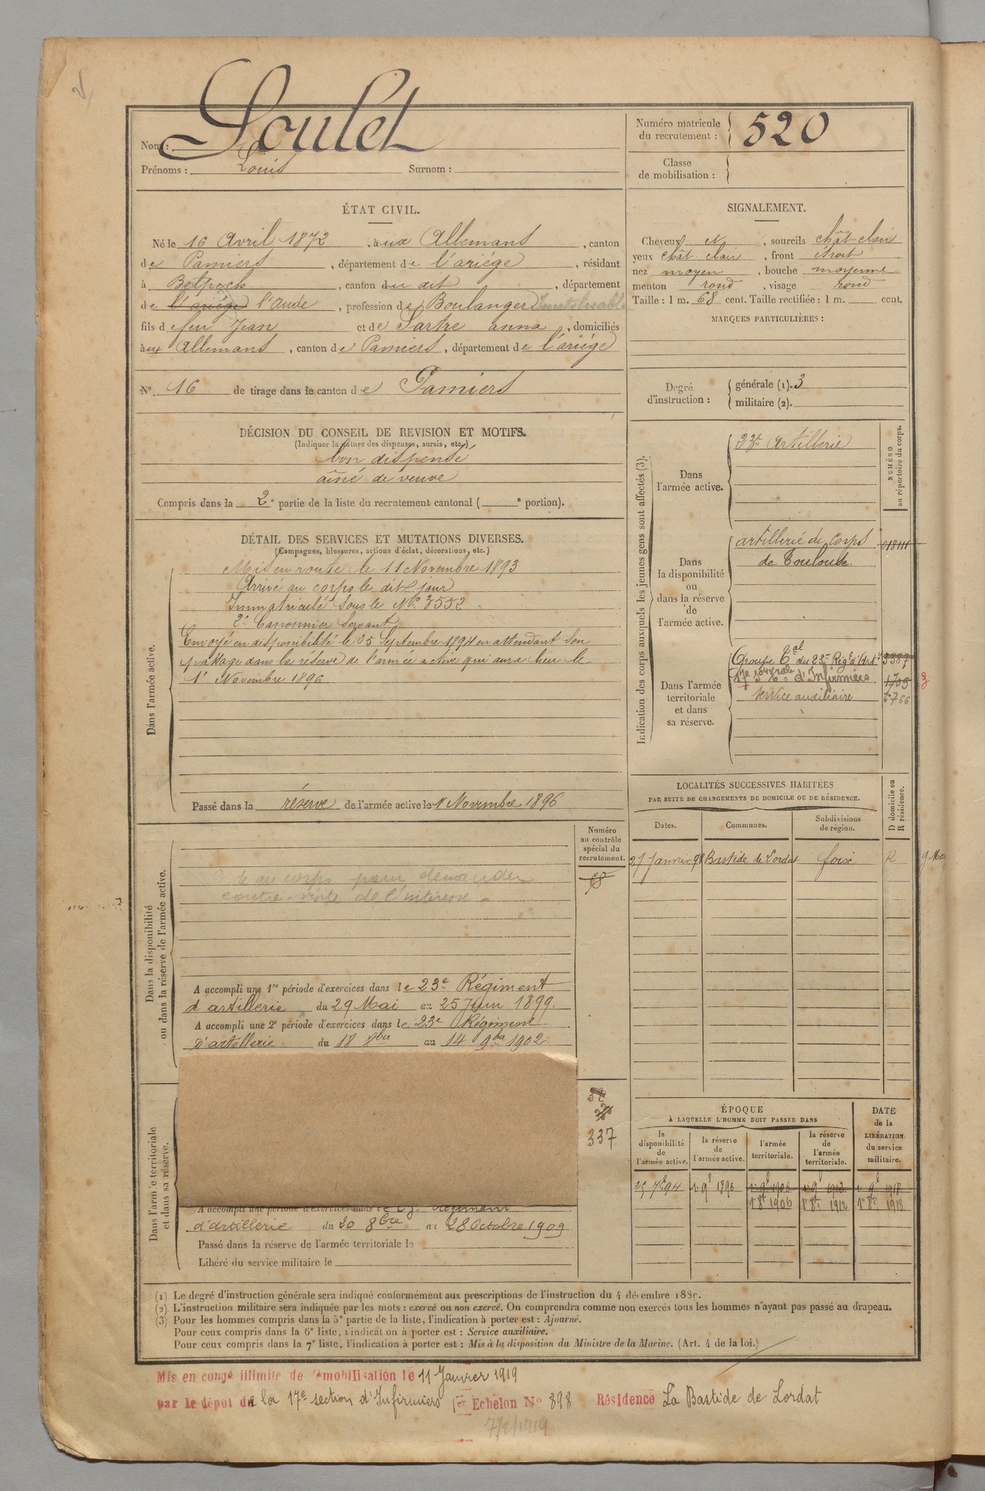 Nom : Soulet
Prénoms : Louis Surnom :
Numéro matricule du recrutement : 520
Classe de mobilisation :
ÉTAT CIVIL.
Né le 16 Avril 1872, à aux Allemans, canton
de Pamiers, département de l'ariège, résidant
à Belpech, canton du dit, département
de l'ariège l'aude, profession de Boulanger
fils de feu Jean et de Sartre anna, domiciliés
à aux Allemans, canton de Pamiers, département de l'ariège
N° 16 de tirage dans le canton de Pamiers
SIGNALEMENT.
Cheveux et, sourcils chât clair
yeux chât clair, front étroit
nez moyen, bouche moyenne
menton rond, visage rond
Taille : 1 m. 68 cent. Taille rectifiée : 1 m. cent.
MARQUES PARTICULIÈRES :
Degré d'instruction : générale (1). 3
militaire (2).
DÉCISION DU CONSEIL DE REVISION ET MOTIFS.
(Indiquer la nature des dispenses, sursis, etc.)
bon dispensé
aîné de veuve
Compris dans la 2e partie de la liste du recrutement cantonal ( e portion).
DÉTAIL DES SERVICES ET MUTATIONS DIVERSES.
(Campagnes, blessures, actions d'éclat, décorations, etc.)
Dans l'armée active.
Mis en route le 11 Novembre 1893
Arrivé au corps le dit jour
Immatriculé sous le N° 3552
2e Canonnier Servant
Envoyé en disponibilité le 25 Septembre 1894 en attendant son
passage dans la réserve de l'armée active qui aura lieu le
1er Novembre 1896
Passé dans la réserve de l'armée active le 1 Novembre 1896
Indication des corps auxquels les jeunes gens sont affectés (3).
NUMÉRO au répertoire du corps.
Dans l'armée active.
23e Artillerie
Dans la disponibilité ou dans la réserve de l'armée active.
artillerie de Corps
de Toulouse
Dans l'armée territoriale et dans sa réserve.
Groupe Tal du 23e Régt d'Art
d'Infirmiers
service auxiliaire
LOCALITÉS SUCCESSIVES HABITÉES
PAR SUITE DE CHANGEMENTS DE DOMICILE OU DE RÉSIDENCE.
Dates. Communes. Subdivisions de région. D domicile ou R résidence.
27 Janvier 98 Bastide de Lordat foix R
Dans la disponibilité ou dans la réserve de l'armée active.
Numéro au contrôle spécial du recrutement.
corps pour demander
contre-visite de l'intéressé
A accompli une 1re période d'exercices dans le 23e Régiment
d'artillerie du 29 Mai au 25 Juin 1899.
A accompli une 2e période d'exercices dans le 23e Régiment
d'artillerie du 18 8bre au 14 9bre 1902
Dans l'armée territoriale et dans sa réserve.
337
A accompli une période d'exercices dans le 23e Régiment
d'artillerie du 20 8bre au 28 Octobre 1909
Passé dans la réserve de l'armée territoriale le
Libéré du service militaire le
ÉPOQUE
À LAQUELLE L'HOMME DOIT PASSER DANS
la disponibilité de l'armée active. la réserve de l'armée active. l'armée territoriale. la réserve de l'armée territoriale. DATE de la LIBÉRATION du service militaire.
25 7bre 94 1er 9bre 1896 1er 9bre 1906 1er 9bre 1912 1er 9bre 1918
1er 8bre 1906 1er 8bre 1912 1er 8bre 1918
(1) Le degré d'instruction générale sera indiqué conformément aux prescriptions de l'instruction du 4 décembre 1889.
(2) L'instruction militaire sera indiquée par les mots : exercé ou non exercé. On comprendra comme non exercés tous les hommes n'ayant pas passé au drapeau.
(3) Pour les hommes compris dans la 5e partie de la liste, l'indication à porter est : Ajourné.
Pour ceux compris dans la 6e liste, l'indication à porter est : Service auxiliaire.
Pour ceux compris dans la 7e liste, l'indication à porter est : Mis à la disposition du Ministre de la Marine. (Art. 4 de la loi.)
Mis en congé illimité de démobilisation le 11 Janvier 1919
par le dépôt de la 17e section d'Infirmiers 1er Echelon N° 898 Résidence La Bastide de Lordat